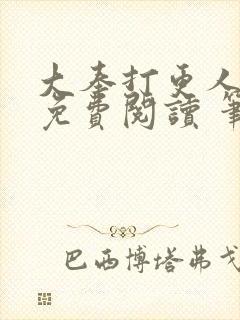 大奉打更人
免費閱讀 筆
巴西博塔弗戈